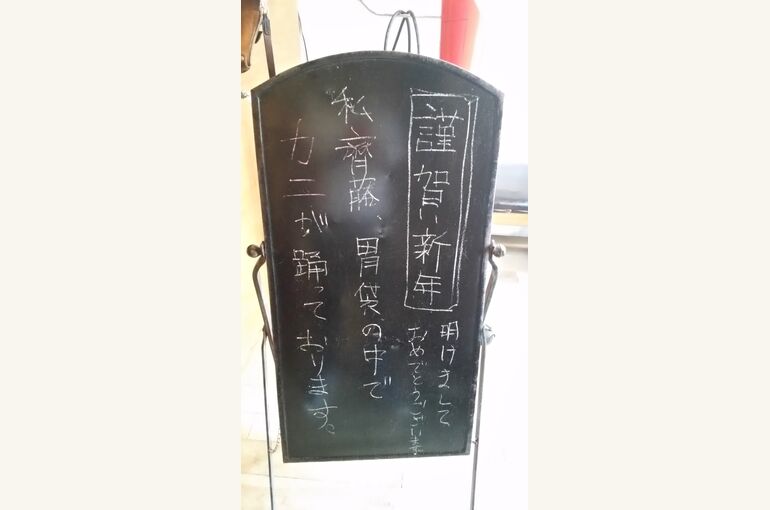 謹賀新年
明けまして
おめでとうございます
私齊藤、胃袋の中で
カニが踊っております。